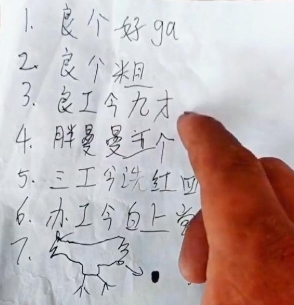 1. 良个好ga
2. 良个粗
3. 良工今九才
4. 胖曼曼王个
5. 三工今洗红四
6. 办工今白上
7.